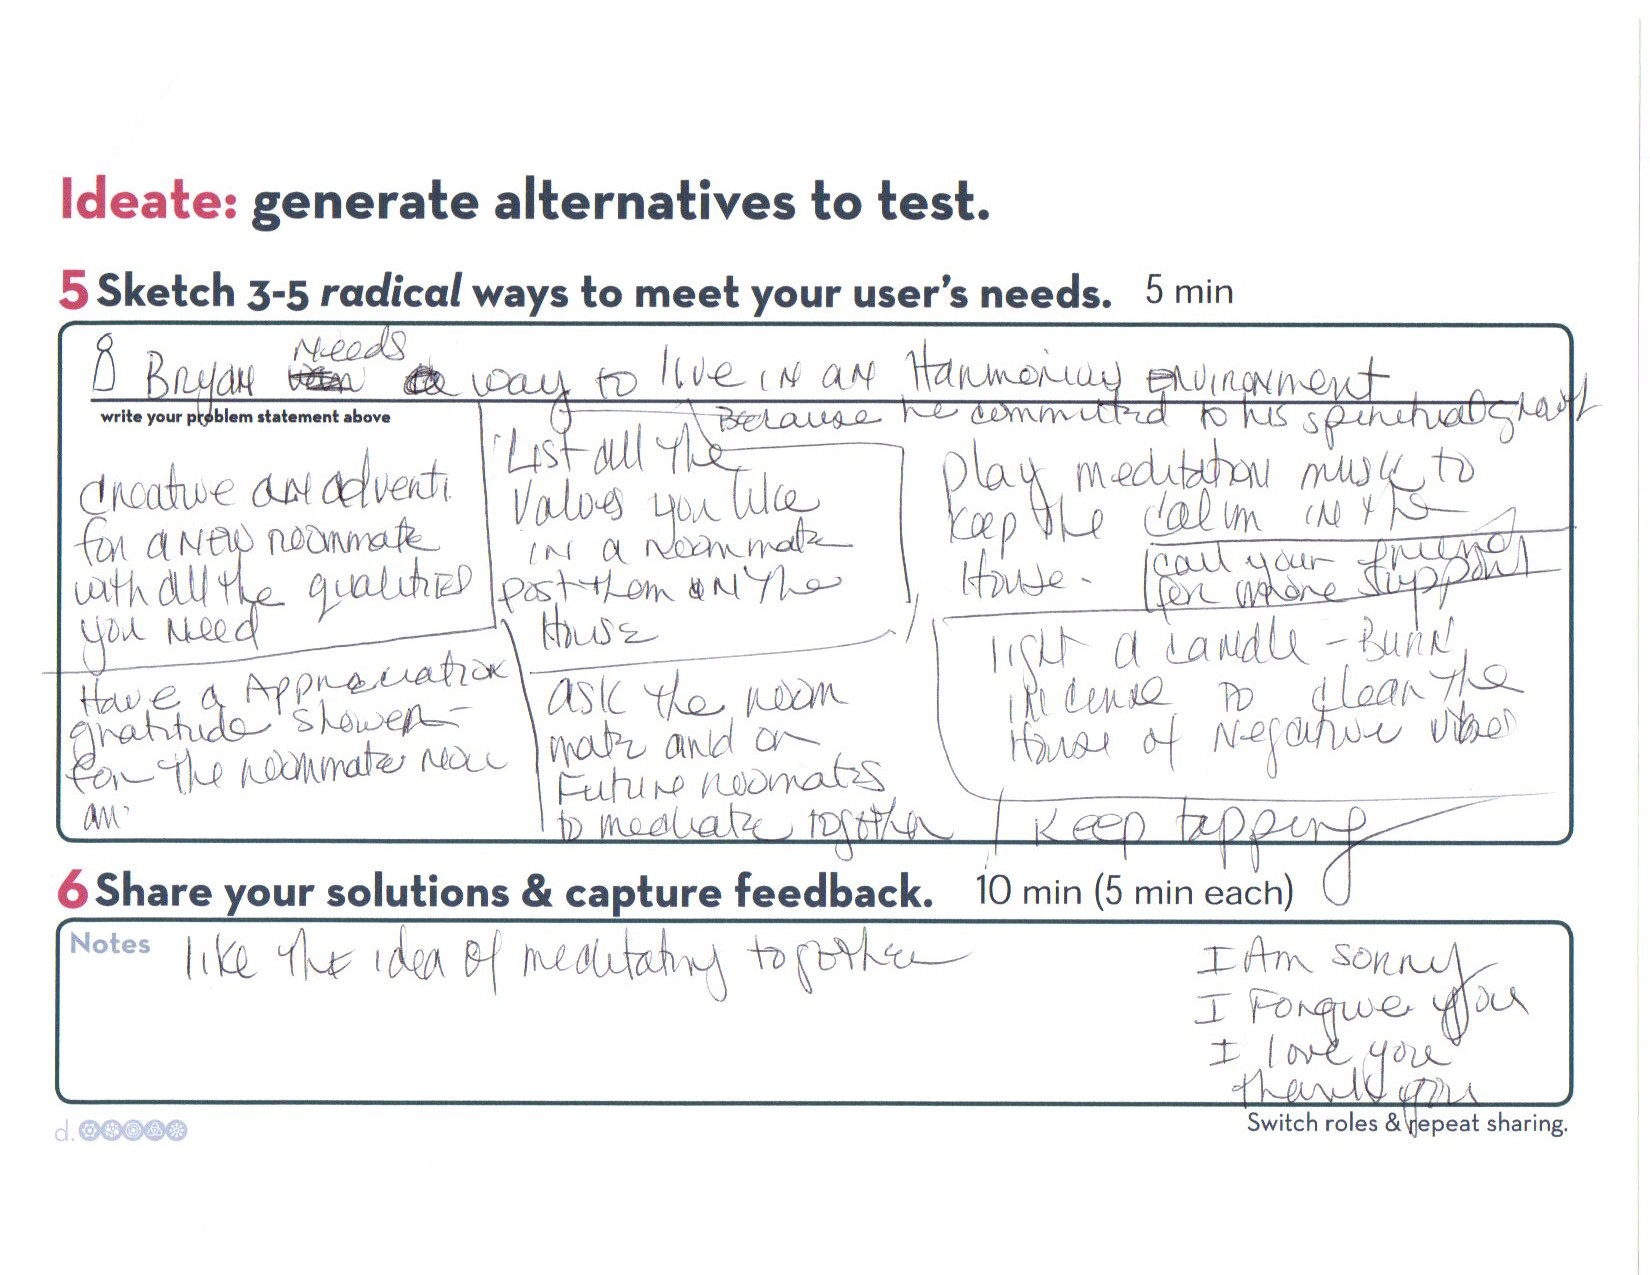 Ideate: generate alternatives to test.
5 Sketch 3-5 radical ways to meet your user's needs. 5 min
Needs
Bryan a way to live in an Harmonious Environment
write your problem statement above
Because he committed to his spiritual growt
Creative an adventi
for a new roommate
with all the qualities
you need
List all the
values you like
in a roommate
post them on the
House
play meditation music to
keep the calm in the
House.
call your friends
for more support
Have a Appreciation
gratitude shower
for the roommate now
ask the room
mate and or
Future roomates
to mediate together
light a candle - Burn
incense to clean the
House of Negative vibes
Keep tapping
6 Share your solutions & capture feedback. 10 min (5 min each)
Notes
like the idea of meditating together
I Am sorry
I Forgive you
I love you
thank you
d.
Switch roles & repeat sharing.